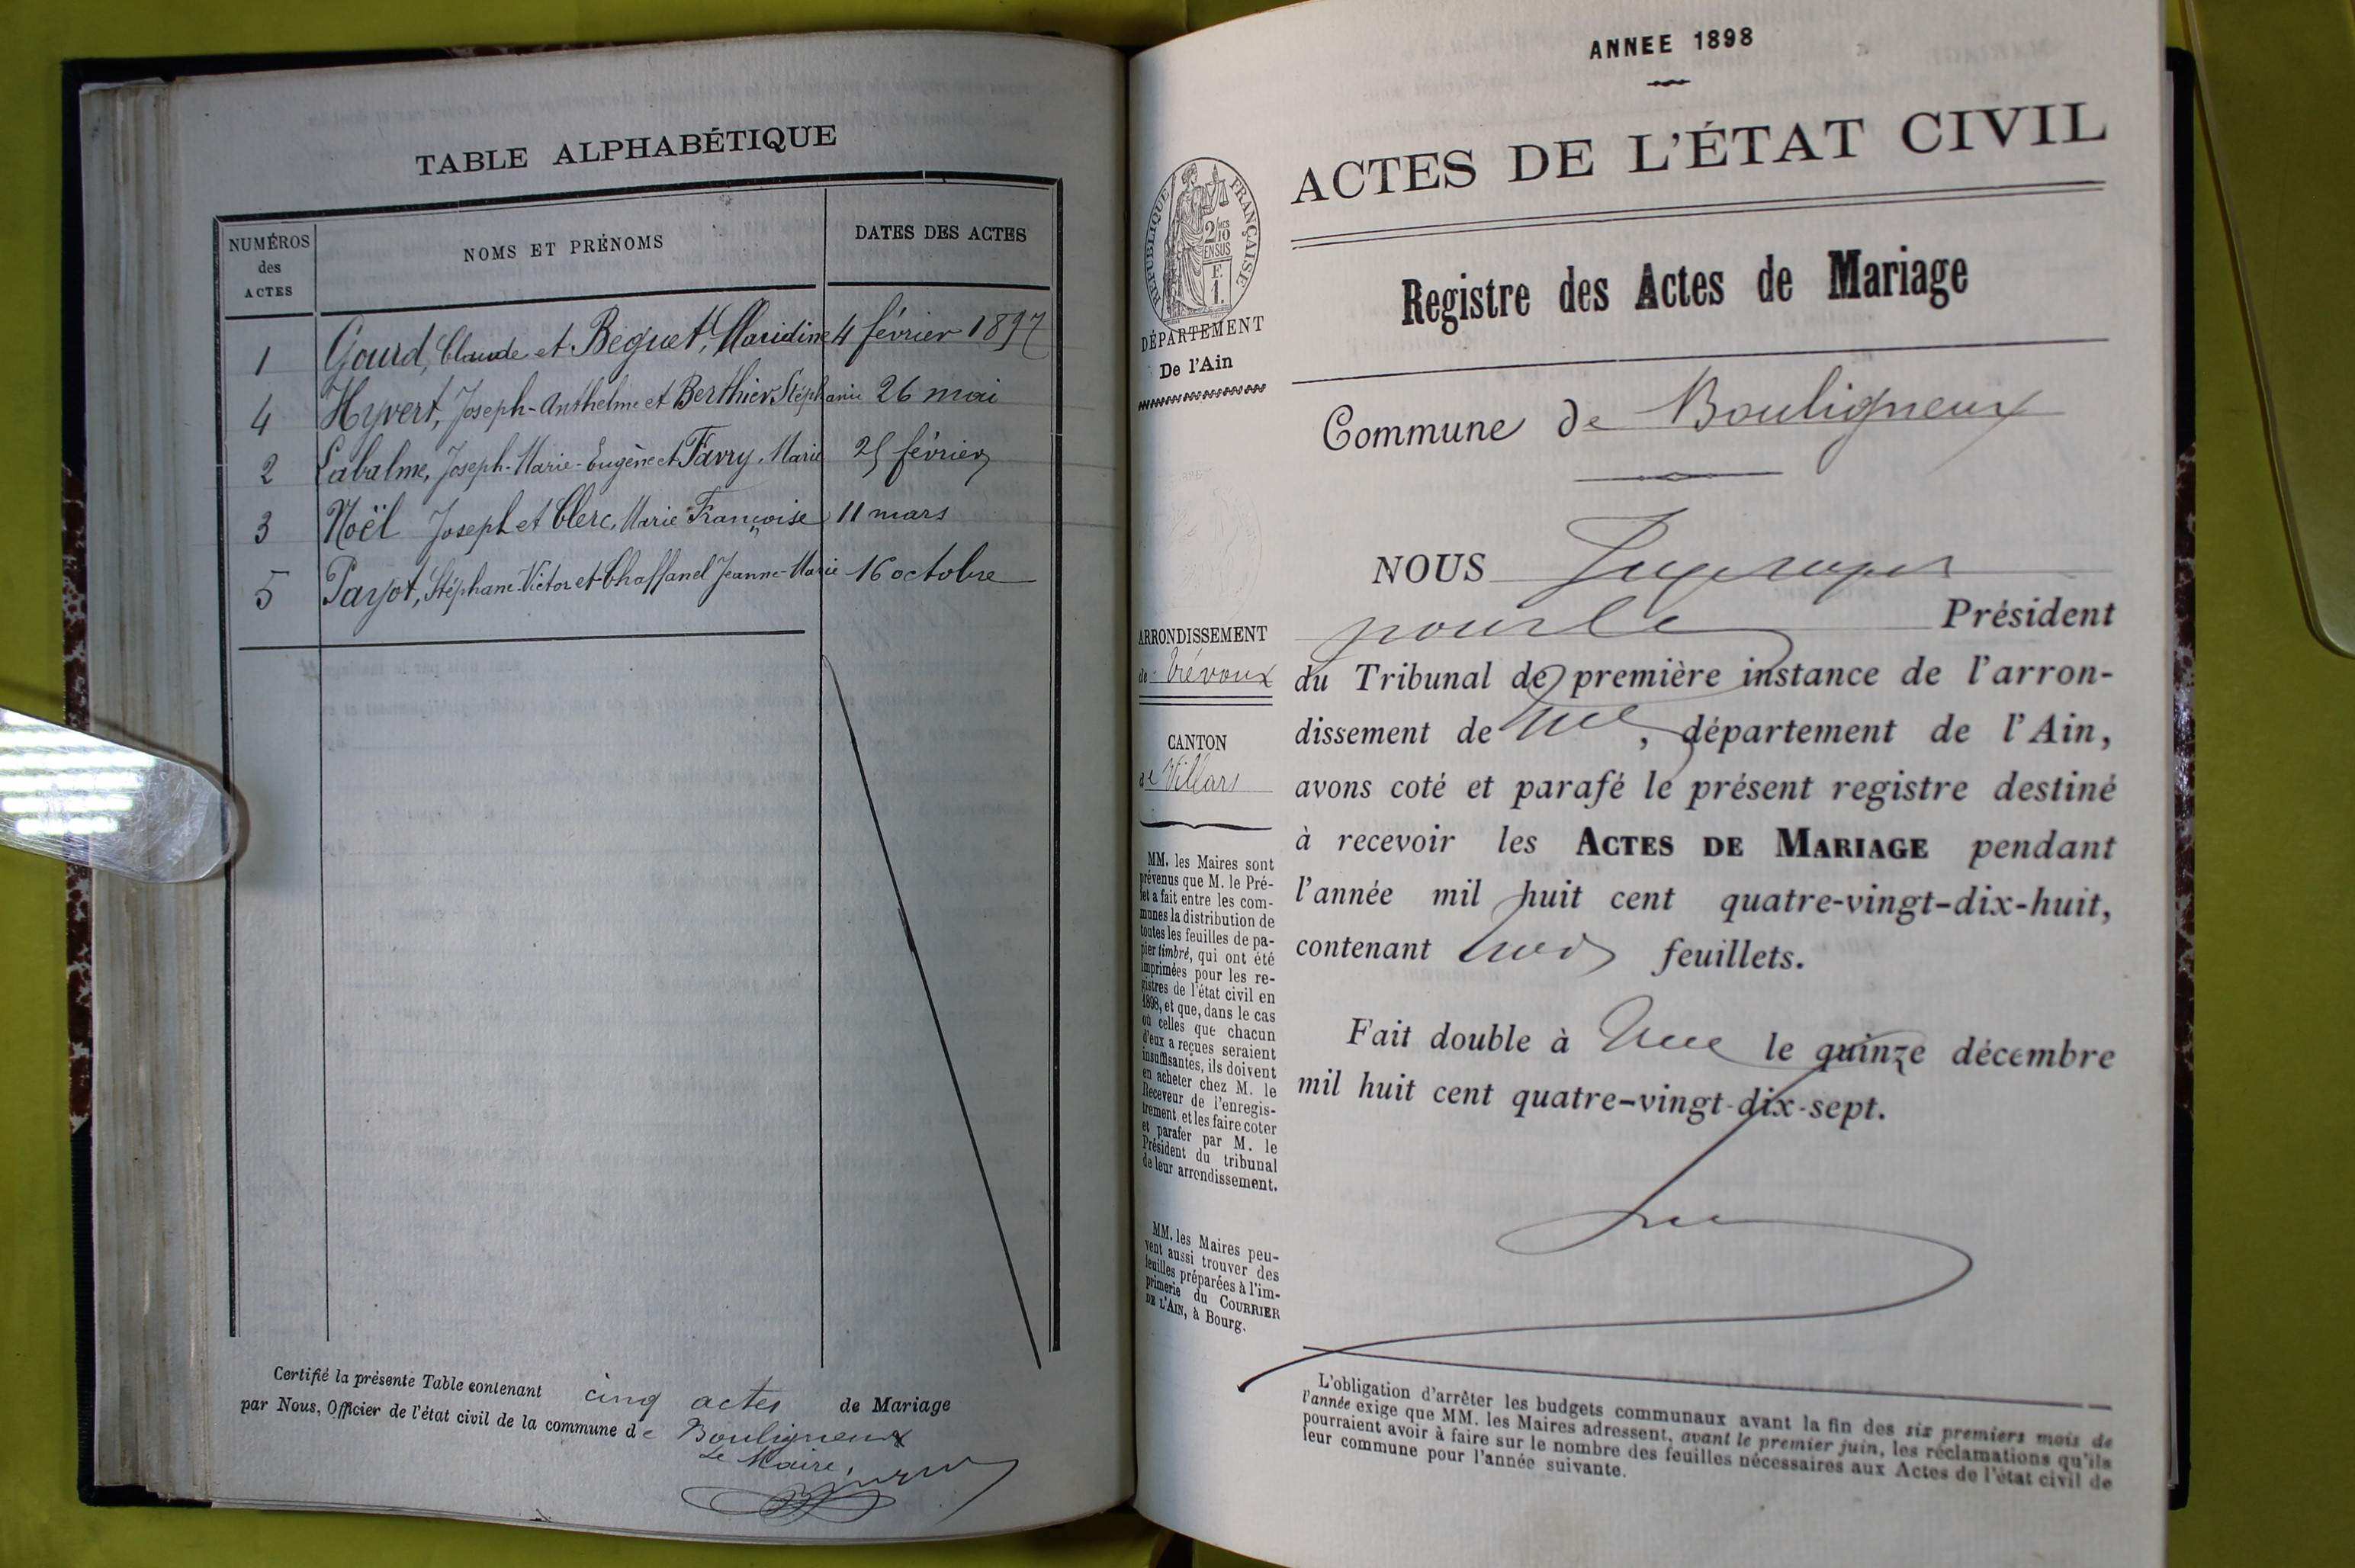 TABLE ALPHABÉTIQUE
NUMÉROS des ACTES
NOMS ET PRÉNOMS
DATES DES ACTES
1 Gourd, Claude et Beguet, Claudine 4 février 1897
4 Hyvert, Joseph-Anthelme et Berthier Stéphanie 26 mai
2 Labalme, Joseph-Marie-Eugène et Favry, Marie 25 février
3 Noël Joseph et Clerc, Marie Françoise 11 mars
5 Payot, Stéphane-Victor et Chaffanel Jeanne-Marie 16 octobre
Certifié la présente Table contenant cinq actes de Mariage
par Nous, Officier de l'état civil de la commune de Bouligneux
Le Maire,
ANNEE 1898
ACTES DE L'ÉTAT CIVIL
RÉPUBLIQUE FRANÇAISE
2/10 EN SUS
F.
1.
DÉPARTEMENT
De l'Ain
ARRONDISSEMENT
de Trévoux
CANTON
de Villars
MM. les Maires sont
prévenus que M. le Pré-
fet a fait entre les com-
munes la distribution de
toutes les feuilles de pa-
pier timbré, qui ont été
imprimées pour les re-
gistres de l'état civil en
1898, et que, dans le cas
où celles que chacun
d'eux a reçues seraient
insuffisantes, ils doivent
en acheter chez M. le
Receveur de l'enregis-
trement, et les faire coter
et parafer par M. le
Président du tribunal
de leur arrondissement.
MM. les Maires peu-
vent aussi trouver des
feuilles préparées à l'im-
primerie du COURRIER
DE L'AIN, à Bourg.
Registre des Actes de Mariage
Commune de Bouligneux
NOUS
pour le Président
du Tribunal de première instance de l'arron-
dissement de , département de l'Ain,
avons coté et parafé le présent registre destiné
à recevoir les ACTES DE MARIAGE pendant
l'année mil huit cent quatre-vingt-dix-huit,
contenant trois feuillets.
Fait double à le quinze décembre
mil huit cent quatre-vingt-dix-sept.
L'obligation d'arrêter les budgets communaux avant la fin des six premiers mois de
l'année exige que MM. les Maires adressent, avant le premier juin, les réclamations qu'ils
pourraient avoir à faire sur le nombre des feuilles nécessaires aux Actes de l'état civil de
leur commune pour l'année suivante.